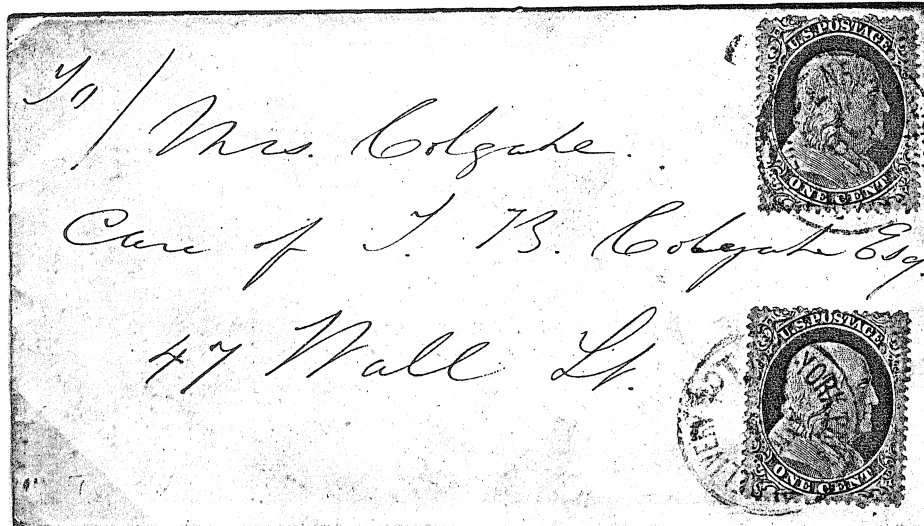 To/
Mrs. Colgate.
Care of T. B. Colgate Esq.
47 Wall St.
U.S. POSTAGE
ONE CENT
U.S. POSTAGE
ONE CENT
YORK